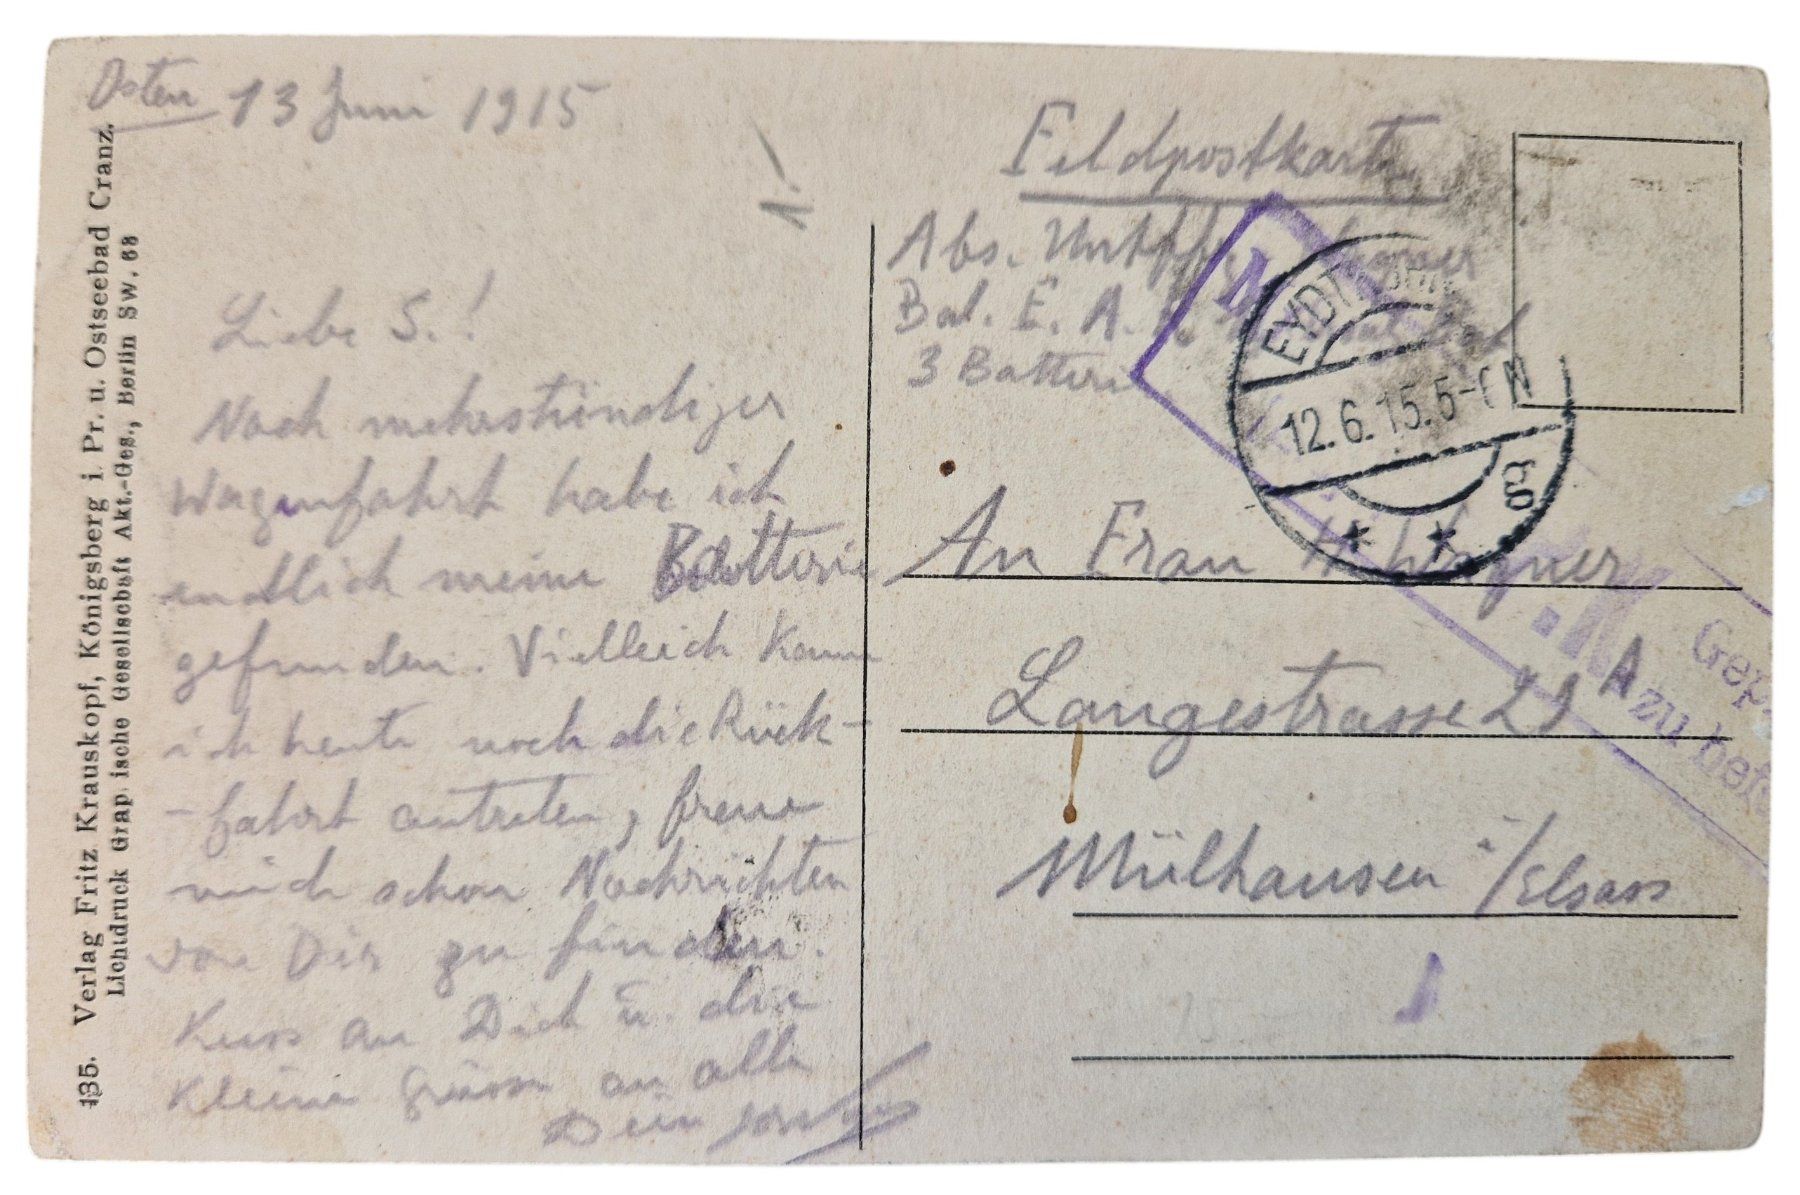 Osten 13 Juni 1915
1.
Liebe S.!
Nach mehrstündiger
Wagenfahrt habe ich
endlich meine Batterie
gefunden. Vielleich kann
ich heute noch die Rück-
-fahrt antreten, freue
mich schon Nachrichten
von Dir zu finden.
Kuss an Dich u. die
Kleine Grüsse an alle
Dein
Feldpostkarte
Abs.
Bal. E. A.
3 Batterie
EYDTKUHN
12.6.15.5-6N
An Frau H. Wagner
Langestrasse 29
Mülhausen i/Elsass
Gep
zu bef
135. Verlag Fritz Krauskopf, Königsberg i. Pr. u. Ostseebad Cranz.
Lichtdruck Graphische Gesellschaft Akt.-Ges., Berlin SW. 68